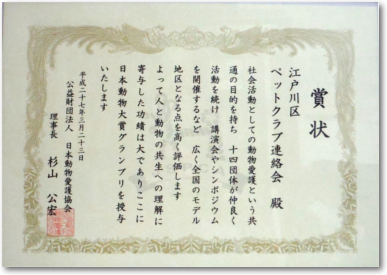 賞状
江戸川区
ペットクラブ連絡会 殿
社会活動としての動物愛護という共
通の目的を持ち 十四団体が仲良く
活動を続け 講演会やシンポジウム
を開催するなど 広く全国のモデル
地区となる点を高く評価します
よって人と動物の共生への理解に
寄与した功績は大でありここに
日本動物大賞グランプリを授与
いたします
平成二十七年三月二十三日
公益財団法人 日本動物愛護協会
理事長 杉山 公宏